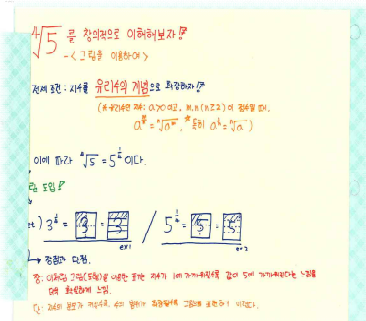 ⁴√5 를 창의적으로 이해해보자!
-<그림을 이용하여>
전제 조건 : 지수를 유리수의 개념으로 확장하자!
(*유리수인 지수: a>0이고, m, n(n≥2)이 정수일 때,
a^(m/n) = ⁿ√a^m, *특히 a^(1/n) = ⁿ√a)
이에 따라 ⁴√5 = 5^(1/4) 이다.
도입!
) 3^(1/4) = 3 = 3 / 5^(1/4) = 5 = 5
ex1 ex2
→ 장점과 단점.
장: 이처럼 그림(도형)을 이용한 표기는 지수가 1에 가까워질수록 값이 5에 가까워진다는 느낌을
더욱 확실하게 느낌.
단: 지수의 분모가 커질수록, 수의 범위가 확장될수록 그림으로 표현하기 어렵다.